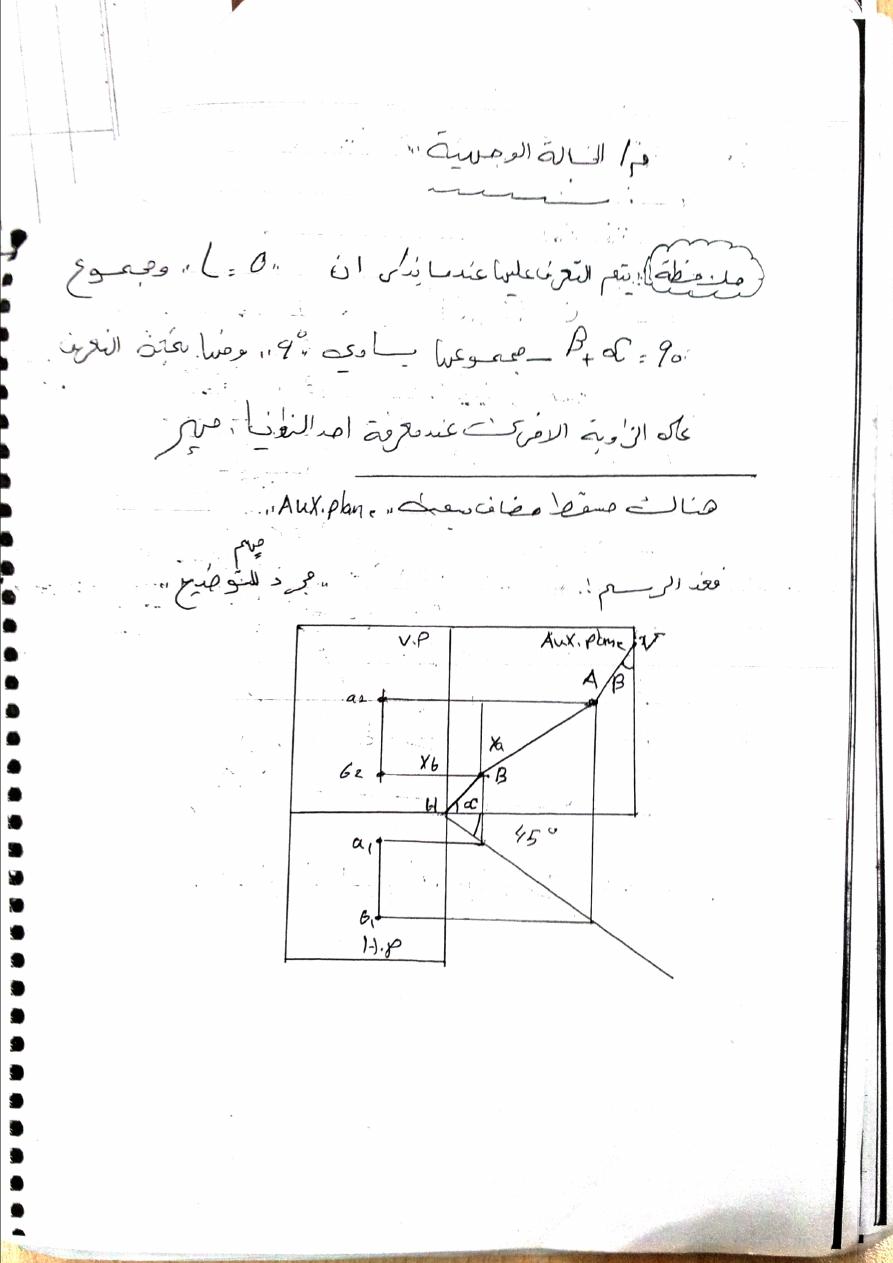 م/ الحالة الوجهية
ملاحظة: يتم التعرف عليها عندما يذكر ان "L = 0" ومجموع
β + α = 90 مجموعها يساوي "90°" وهنا التعرف
على الزاوية الاخرى عند معرفة احد الزوايا: مهم
هناك مسقط مضاف "Aux.plane"
مهم
فعند الرسم: "مجرد للتوضيح"
V.P Aux.plane V
A β
a2
Xa
b2 Xb B
H α
45°
a1
b1
H.P